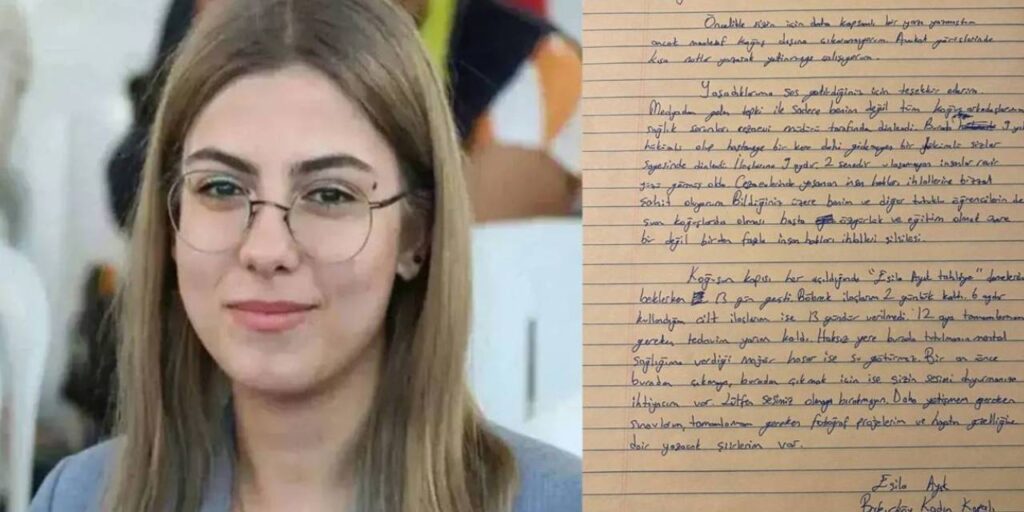 Öncelikle sizin için daha kapsamlı bir yazı yazmıştım
ancak maalesef koğuş dışına çıkaramıyorum. Avukat görüşlerinde
kısa notlar yazarak yetinmeye çalışıyorum.
Yaşadıklarıma ses getirdiğiniz için teşekkür ederim.
Medyadan gelen tepki ile sadece benim değil tüm koğuş arkadaşlarımın
sağlık sorunları cezaevi müdürü tarafından dinlendi. Burada 9 aydır
olup hastaneye bir kere dahi gidemeyen bir hekimli sizler
sayesinde dinlendi. İlaçlarına 9 aydır, 2 senedir ulaşamayan insanlar revir
yüzü görmüş oldu. Cezaevlerinde yaşanan insan hakları ihlallerine bizzat
şahit oluyorum. Bildiğiniz üzere benim ve diğer tutuklu öğrencilerin de
şuan koğuşlarda olması başta özgürlük ve eğitim olmak üzere
bir değil birden fazla insan hakları ihlalleri silsilesi.
Koğuşun kapısı her açıldığında "Esila Ayık tahliye" demelerini
beklerken 13 gün geçti. Böbrek ilaçlarım 2 günlük kaldı. 6 aydır
kullandığım cilt ilaçlarım ise 13 gündür verilmedi. 12 aya tamamlamam
gereken tedavim yarım kaldı. Haksız yere burada tutulmanın mental
sağlığıma verdiği hasar ise su götürmez. Bir an önce
buradan çıkmaya, buradan çıkmak için ise sizin sesimi duyurmanıza
ihtiyacım var. Lütfen sesimiz olmayı bırakmayın. Daha yetişmem gereken
sınavlarım, tamamlamam gereken fotoğraf projelerim ve hayatın güzelliğine
dair yazacak şiirlerim var.
Esila Ayık
Bakırköy Kadın Kapalı